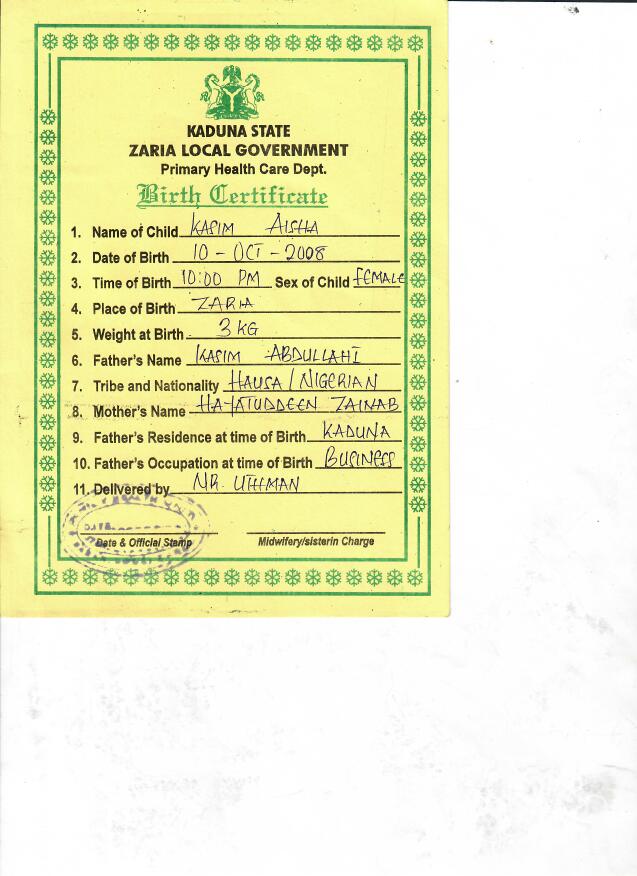 KADUNA STATE
ZARIA LOCAL GOVERNMENT
Primary Health Care Dept.
Birth Certificate
1. Name of Child KASIM AISHA
2. Date of Birth 10-OCT-2008
3. Time of Birth 10:00 PM Sex of Child FEMALE
4. Place of Birth ZARIA
5. Weight at Birth 3KG
6. Father's Name KASIM ABDULLAHI
7. Tribe and Nationality HAUSA/NIGERIAN
8. Mother's Name HAYATUDDEEN ZAINAB
9. Father's Residence at time of Birth KADUNA
10. Father's Occupation at time of Birth BUSINESS
11. Delivered by NR. UTHMAN
DATE
Date & Official Stamp Midwifery/sisterin Charge